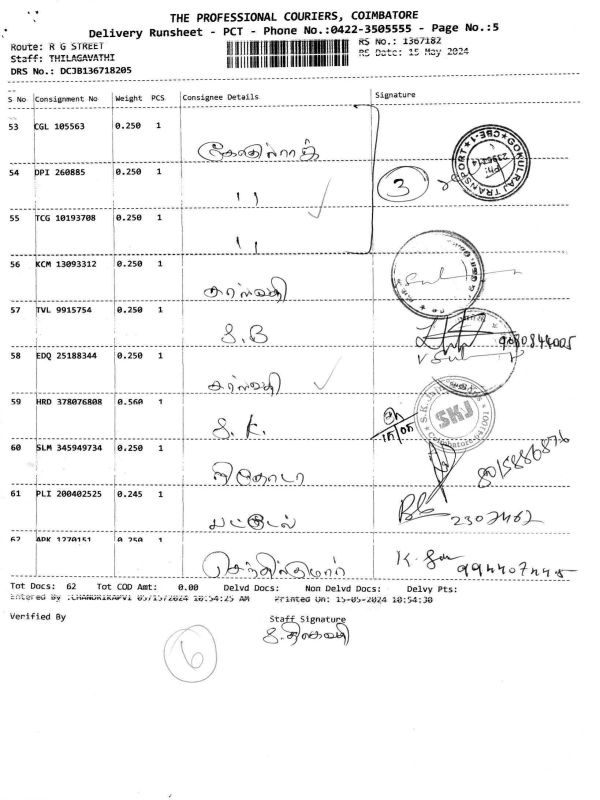 THE PROFESSIONAL COURIERS, COIMBATORE
Delivery Runsheet - PCT - Phone No.:0422-3505555 - Page No.:5
Route: R G STREET
RS No.: 1367182
Staff: THILAGAVATHI
RS Date: 15 May 2024
DRS No.: DCJB136718205
S No Consignment No Weight PCS Consignee Details Signature
53 CGL 105563 0.250 1
GOKULRAJ TRANSPORT CBE-1
PH: 2396214
54 DPI 260885 0.250 1
3
" 
55 TCG 10193708 0.250 1
"
56 KCM 13093312 0.250 1
சரஸ்வதி
57 TVL 9915754 0.250 1
S.B
58 EDQ 25188344 0.250 1
சரஸ்வதி
59 HRD 378076808 0.560 1
S.K.
15/05
S.K. Jain
SKJ
Coimbatore-641001
60 SLM 345949734 0.250 1
61 PLI 200402525 0.245 1
2307462
62 APK 1270151 0.250 1
செந்தில்குமார்
Tot Docs: 62 Tot COD Amt: 0.00 Delvd Docs: Non Delvd Docs: Delvy Pts:
Entered By :CHANDRIKAPV1 05/15/2024 10:54:25 AM Printed On: 15-05-2024 10:54:30
Verified By
Staff Signature
6